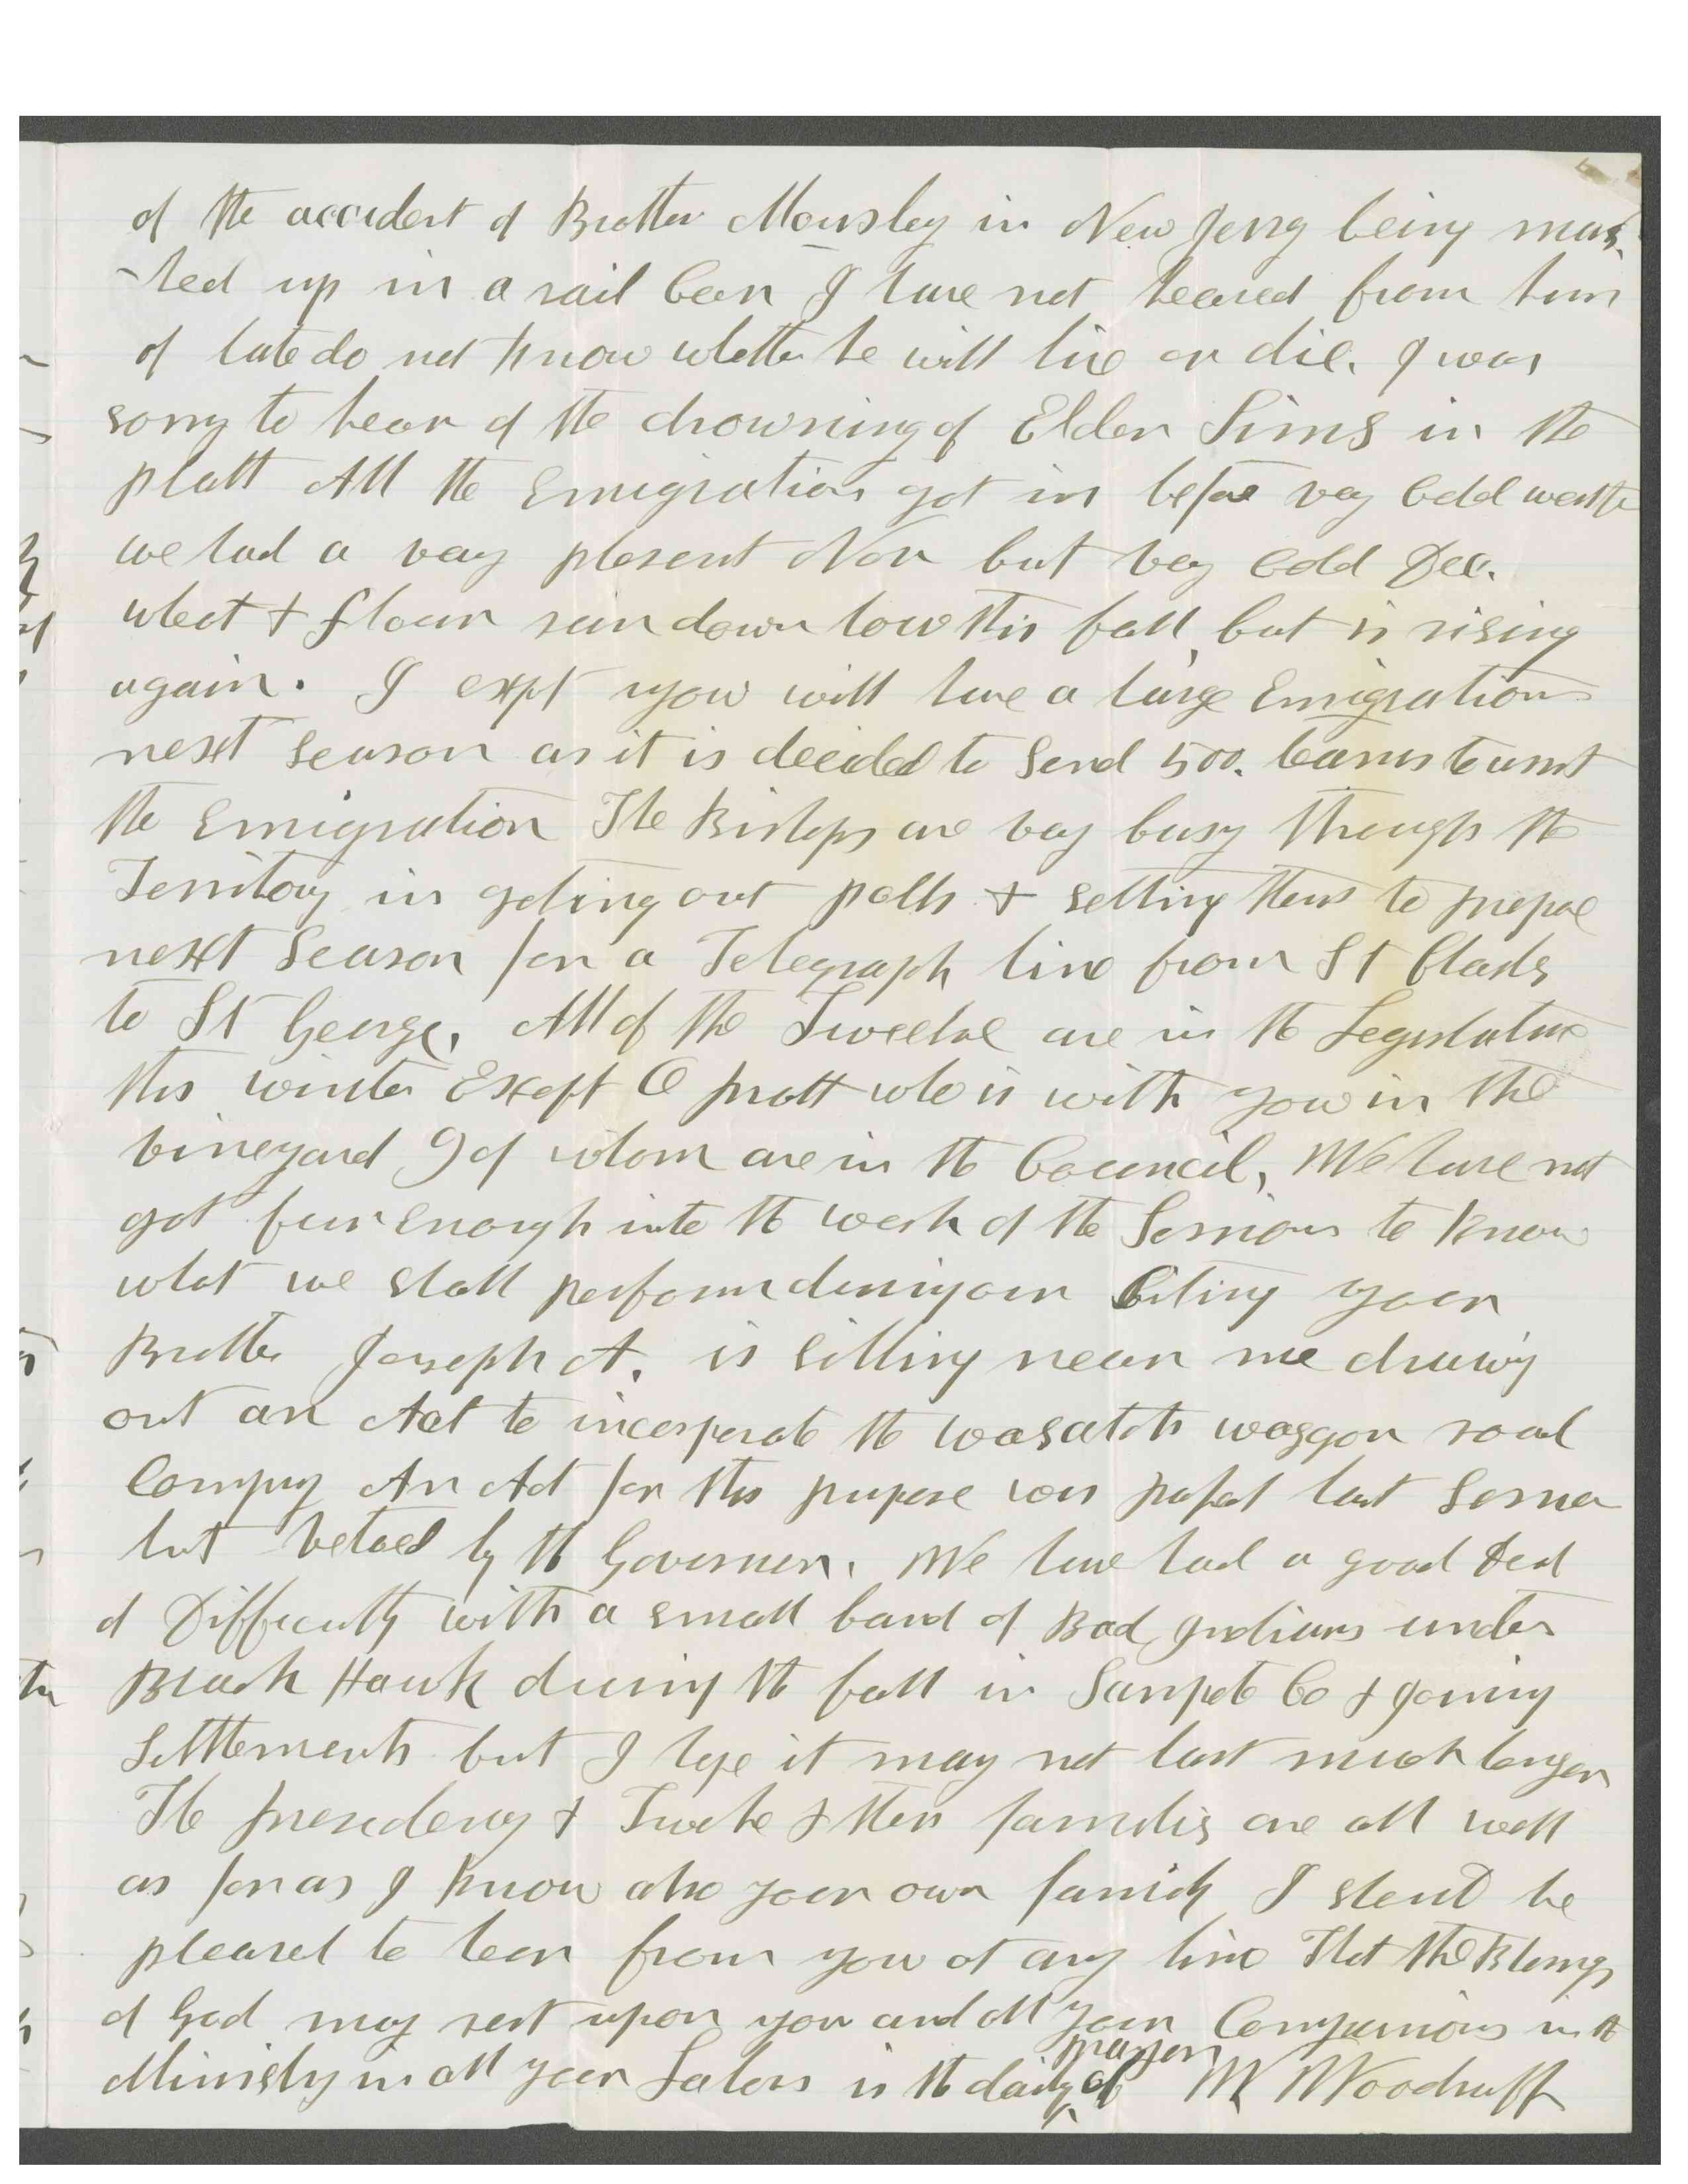 of the accident of Brother Mousley in New Jersy being mas
-hed up in a rail Carr I have not heared from him
of late do not know whether he will live or die. I was
sorry to hear of the drowning of Elder Sims in the
platt All the Emigration got in before very Cold weather
we had a very plesent Nov but very Cold Dec.
wheat & flour run down low this fall, but is rising
again. I expt you will have a large Emigration
next season as it is decided to send 500. teams to assist
the Emigration The Bishops are very busy through the
Territory in geting out polls & setting them to prepare
next season for a Telegraph line from St Charls
to St George, All of the Twelve are in the Legislature
this winter Except O pratt who is with you in the
vineyard 9 of whom are in the Council, We have not
got fur enough into the work of the Session to know
what we shall perform during our Sitting your
Brother Joseph A. is sitting near me drawing
out an Act to incorporate the wasatch waggon road
Company An Act for this purpose was passed last Session
but vetoed by the Governor. We have had a good Deal
of Difficulty with a small band of Bad Indians under
Black Hawk during the fall in Sanpete Co & joining
Settlements but I hope it may not last much longer
The presidency & Twelve & their families are all well
as far as I know also your own family I should be
pleased to hear from you at any time That the Blessings
of God may rest upon you and all your Companions in the
Ministry in all your Labors is the daily prayer of W Woodruff